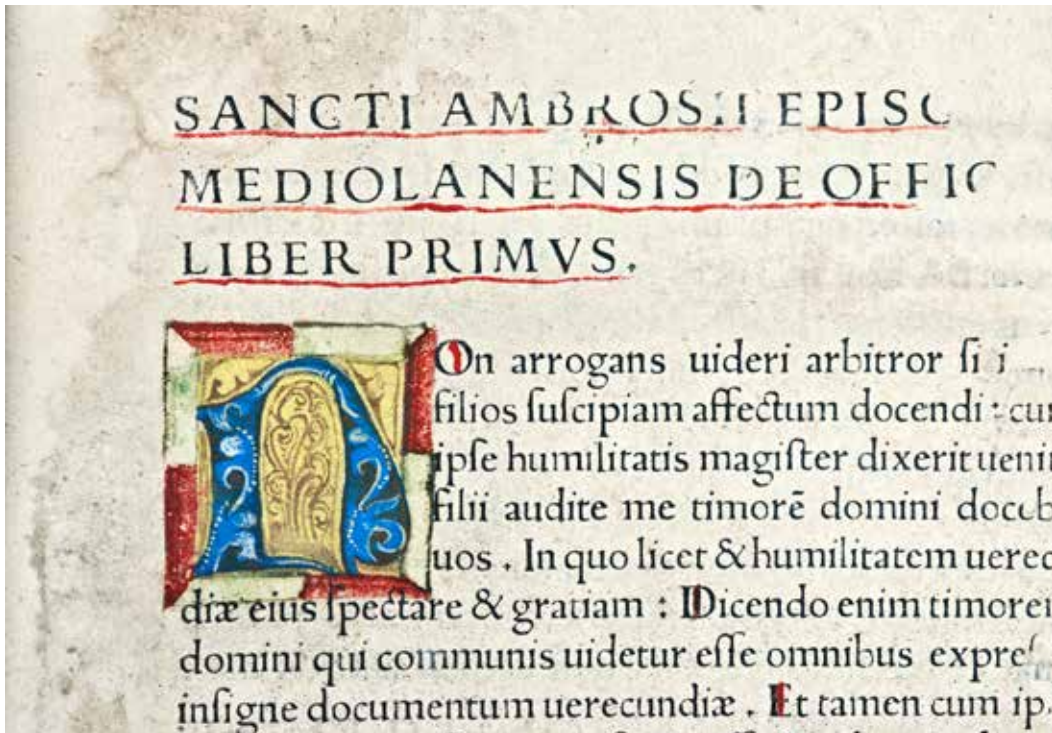 SANCTI AMBROSII EPISC
MEDIOLANENSIS DE OFFIC
LIBER PRIMVS.
NOn arrogans uideri arbitror ſi i
filios ſuſcipiam affectum docendi : cum
ipſe humilitatis magiſter dixerit ueni
filii audite me timorē domini doceb
uos . In quo licet & humilitatem uerec
diæ eius ſpectare & gratiam : Dicendo enim timorem
domini qui communis uidetur eſſe omnibus expreſ
inſigne documentum uerecundiæ . Et tamen cum ip